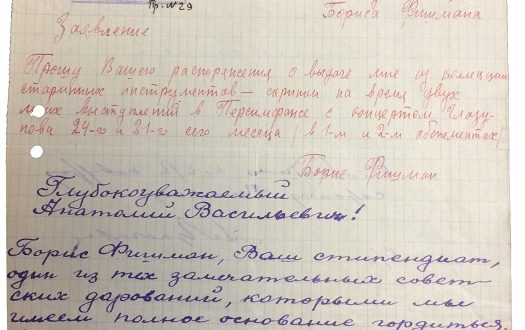 Пр. № 29
Бориса Фишмана
Заявление
Прошу Вашего распоряжения о выдаче мне из коллекции
старинных инструментов — скрипки на время двух
моих выступлений в Персимфансе с концертом Глазу-
нова 24-го и 31-го сего месяца (в 1-м и 2-м абонементах).
Борис Фишман
Глубокоуважаемый
Анатолий Васильевич!
Борис Фишман, Ваш стипендиат,
один из тех замечательных совет-
ских дарований, которыми мы
имеем полное основание гордиться,